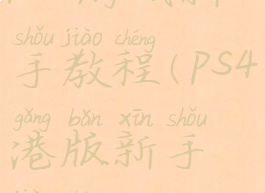 shǒu jiào chéng
手教程(PS4
gǎng bǎn xīn shǒu
港版新手